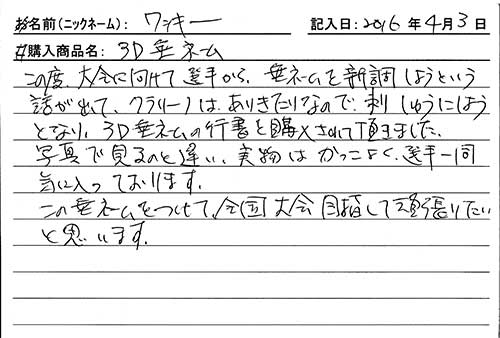 お名前(ニックネーム): ワッキー 記入日: 2016 年 4 月 3 日
ご購入商品名: 3D垂ネーム
この度、大会に向けて選手から、垂ネームを新調しようという
話が出て、クラリーノは、ありきたりなので、刺しゅうにしよう
となり、3D垂ネームの行書を購入させて頂きました。
写真で見るのと違い、実物はかっこよく、選手一同
気に入っております。
この垂ネームをつけて、全国大会目指して頑張りたい
と思います。